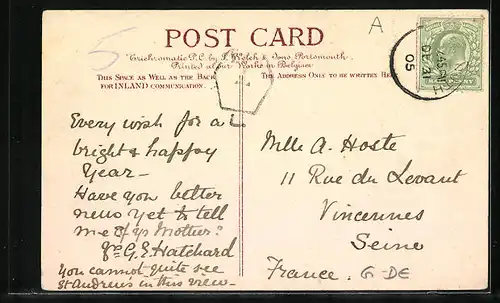 POST CARD
A
5
Trichromatic P.C. by J. Welch & Sons, Portsmouth.
Printed at our Works in Belgium
THIS SPACE AS WELL AS THE BACK
FOR INLAND COMMUNICATION.
THE ADDRESS ONLY TO BE WRITTEN HERE
DE 31
05
Every wish for a
bright & happy
Year –
Have you better
news yet to tell
me of yr Mother?
G. E. Hatchard
You cannot quite see
St Andrew's in this view –
Mlle A. Hoste
11 Rue du Levant
Vincennes
Seine
France. G-DE